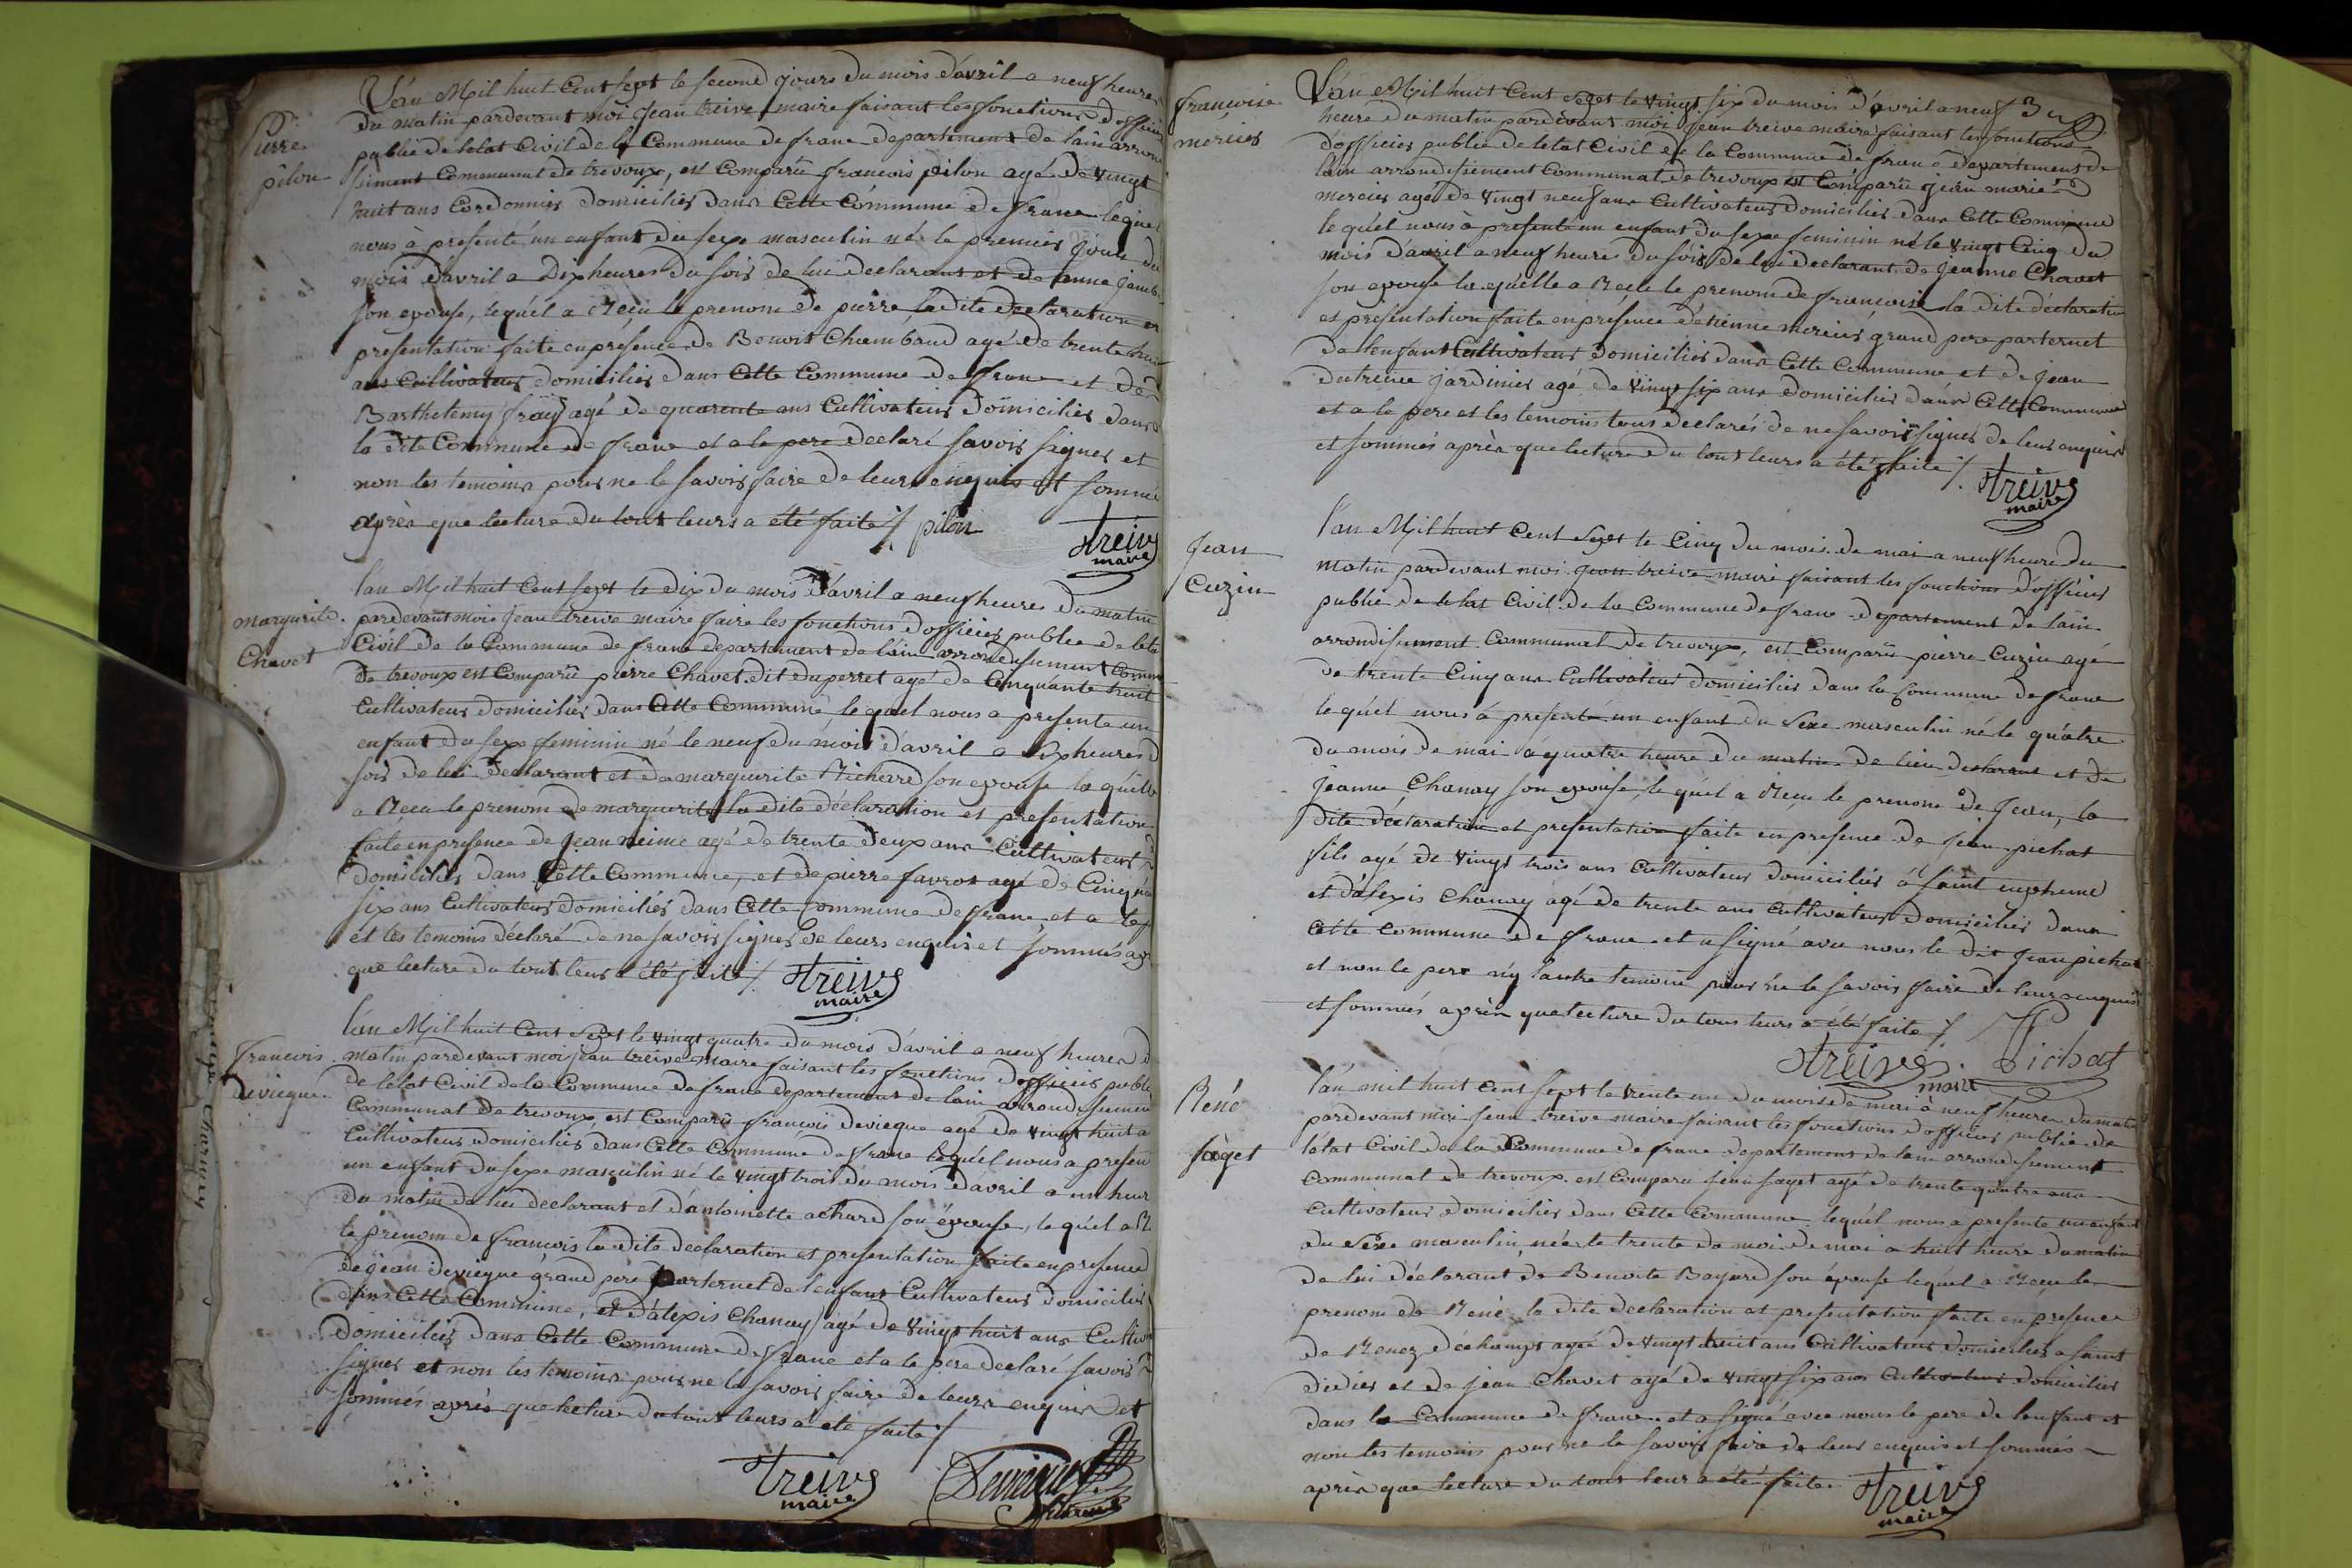 Pierre
pilon
L'an Mil huit Cent sept le second jours du mois d'avril a neuf heures
du matin pardevant moi Jean treive maire faisant les fonctions d'officier
public de letat Civil de la Commune de frans departement de lain arron
disement Communal de trevoux, est Comparû francois pilon agé de vingt
huit ans Cordonnier domicilier dans Cette Commune de frans lequel
nous à presenté un enfant du sexe masculin né le premier jour du
mois d'avril a Dix heures du soir de lui declarant et de anne
son epouse, lequél a Recu le prenom de pierre la dite declaration et
presentation faite en présence de Benoit Chambaud agé de trente
ans Cultivateur domicilier dans Cette Commune de frans et de
Barthelemy fray agé de quarente ans Cultivateur domicilier dans
la dite Commune de frans et a le pere declaré savoir signer et
non les temoins pour ne le savoir faire de leurs enquis et sommé
après que lecture du tout leurs a été faite /. pilon
treive
maire
marguerite
Chavet
l'an Mil huit Cent sept le dix du mois d'avril a neuf heures du matin
pardevant moi Jean treive maire faire les fonctions d'officier public de leta
Civil de la Commune de frans departement de lain arrondisement Commu
de trevoux est Comparû pierre Chavet dit duperret agé de Cinquante huit
Cultivateur domicilier dans Cette Commune, lequel nous a presenté un
enfant du sexe feminin né le neuf du mois d'avril a Six heures d
soir de lui declarant et de marguerite Richerd son epouse laquélle
a Recu le prenom de marguerite la dite déclaration et presentation
faite en presence de Jean agé de trente deux ans Cultivateur
domicilier dans Cette Commune, et de pierre favrot agé de Cinquan
six ans Cultivateur domicilier dans Cette Commune de frans et a le p
et les temoins déclaré de ne savoir signer de leurs enquis et sommés ap
que lecture du tout leurs a été faite /. treive
maire
francois
devieque
l'an Mil huit Cent Sept le vingt quatre du mois d'avril a neuf heures d
matin pardevant moi Jean treive maire faisant les fonctions d'officier public
de letat Civil de la Commune de frans departement de lain arrondisement
Communal de trevoux, est Comparû francois devieque agé de vingt huit a
Cultivateur domicilier dans Cette Commune de frans lequél nous a presen
un enfant du sexe masculin né le vingt trois du mois d'avril a un heur
du matin de lui declarant et d'antoinette achard son épouse, lequél a R
le prenom de francois la dite declaration et presentation faite en presence
de jean devieque grand pere parternel de lenfant Cultivateur domicilier
dans Cette Commune, et d'alexis Chanay agé de vingt huit ans Cultiv
domicilier dans Cette Commune de frans et a le pere declaré savoir
signer et non les temoins pour ne le savoir faire de leurs enquis et
sommés après que lecture du tout leurs a été faite /
treive
maire
Devieque
Charnay
francoise
mercier
L'an Mil huit Cent Sept le vingt six du mois d'avril a neuf 3
heure du matin pardevant moi Jean treive maire faisant les fonctions
d'officier public de letat Civil de la Commune de frans departement de
lain arrondisement Communal de trevoux est Comparû jean marie
mercier agé de vingt neuf ans Cultivateur domicilier dans Cette Commune
lequél nous à presenté un enfant du sexe feminin né le vingt Cinq du
mois d'avril a neuf heures du soir de lui declarant de jeanne Chavet
son epouse laquélle a Recu le prenom de francoise la dite déclaration
et presentation faite en présence d'etienne mercier grand pere parternel
de lenfant Cultivateur domicilier dans Cette Commune et de jean
dutreive jardinier agé de vingt six ans domicilier dans Cette Commune
et a le pere et les temoins tous declarés de ne savoir signer de leur enquis
et sommés après que lecture du tout leurs a été faite /.
treive
maire
Jean
Cuzin
l'an Mil huit Cent Sept le Cinq du mois de mai a neuf heure du
matin pardevant moi jean treive maire faisant les fonctions d'officier
public de letat Civil de la Commune de frans departement de lain
arrondisement Communal de trevoux, est Comparû pierre Cuzin agé
de trente Cinq ans Cultivateur domicilier dans la Commune de frans
lequél nous à présenté un enfant du Sexe masculin né le quatre
du mois de mai à quatre heure du matin de lui declarant et de
Jeanne Chanay son epouse, lequél a Recu le prenom de Jean, la
dite déclaration et presentation faite en presence de Jean pichat
fils agé de vingt trois ans Cultivateur domicilier à saint eupheme
et d'alexis Chanay agé de trente ans Cultivateur domicilier dans
Cette Commune de frans et a signé avec nous le dit Jean pichat
et non le pere n'y l'autre temoin pour ne le savoir faire de leurs enquis
et sommés après que lecture du tous leurs a été faite /
treive maire Pichat
René
faget
l'an mil huit cent sept le trente un du mois de mai à neuf heures du matin
pardevant moi jean treive maire faisant les fonctions d'officier public de
létat Civil de la Commune de frans departement de lain arrondisement
Communal de trevoux est comparu jean faget agé de trente quatre ans
Cultivateur domicilier dans Cette Commune lequél nous a presenté un enfant
du Sexe masculin, née le trente du mois de mai a huit heure du matin
de lui déclarant de Benoite Bayard son épouse lequél a Recu le
prenom de René la dite declaration et presentation faite en presence
de déchamps agé de vingt huit ans Cultivateur domicilier a saint
didier et de jean Chavet agé de vingt six ans Cultivateur domicilier
dans la Commune de frans et a signé avec nous le pere de lenfant et
non les temoins pour ne le savoir faire de leur enquis et sommés
après que lecture du tout leur a été faite. treive
maire